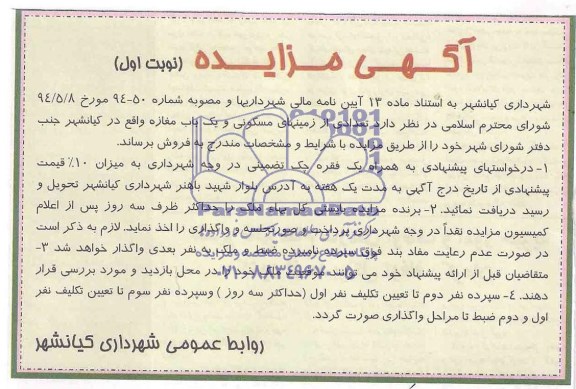 آگهی مزایده (نوبت اول)
شهرداری کیانشهر به استناد ماده ۱۳ آیین نامه مالی شهرداریها و مصوبه شماره ۵۰-۹۴ مورخ ۹۴/۵/۸
شورای محترم اسلامی در نظر دارد تعدادی از زمینهای مسکونی و یک باب مغازه واقع در کیانشهر جنب
دفتر شورای شهر خود را از طریق مزایده با شرایط و مشخصات مندرج به فروش برساند.
۱- درخواستهای پیشنهادی به همراه یک فقره چک تضمینی در وجه شهرداری به میزان ۱۰٪ قیمت
پیشنهادی از تاریخ درج آگهی به مدت یک هفته به آدرس بلوار شهید باهنر شهرداری کیانشهر تحویل و
رسید دریافت نمائید. ۲- برنده مزایده بایستی کل مبلغ ملک را حداکثر ظرف سه روز پس از اعلام
کمیسیون مزایده نقداً در وجه شهرداری پرداخت و صورتجلسه و واگذاری را اخذ نماید. لازم به ذکر است
در صورت عدم رعایت مفاد بند فوق سپرده نامبرده ضبط و ملک به نفر بعدی واگذار خواهد شد ۳-
متقاضیان قبل از ارائه پیشنهاد خود می توانند در محل بازدید و مورد بررسی قرار
دهند. ۴- سپرده نفر دوم تا تعیین تکلیف نفر اول (حداکثر سه روز ) وسپرده نفر سوم تا تعیین تکلیف نفر
اول و دوم ضبط تا مراحل واگذاری صورت گردد.
روابط عمومی شهرداری کیانشهر
ParsNamadData
۰۲۱-۸۸۳۴۹۶۷۰-۵